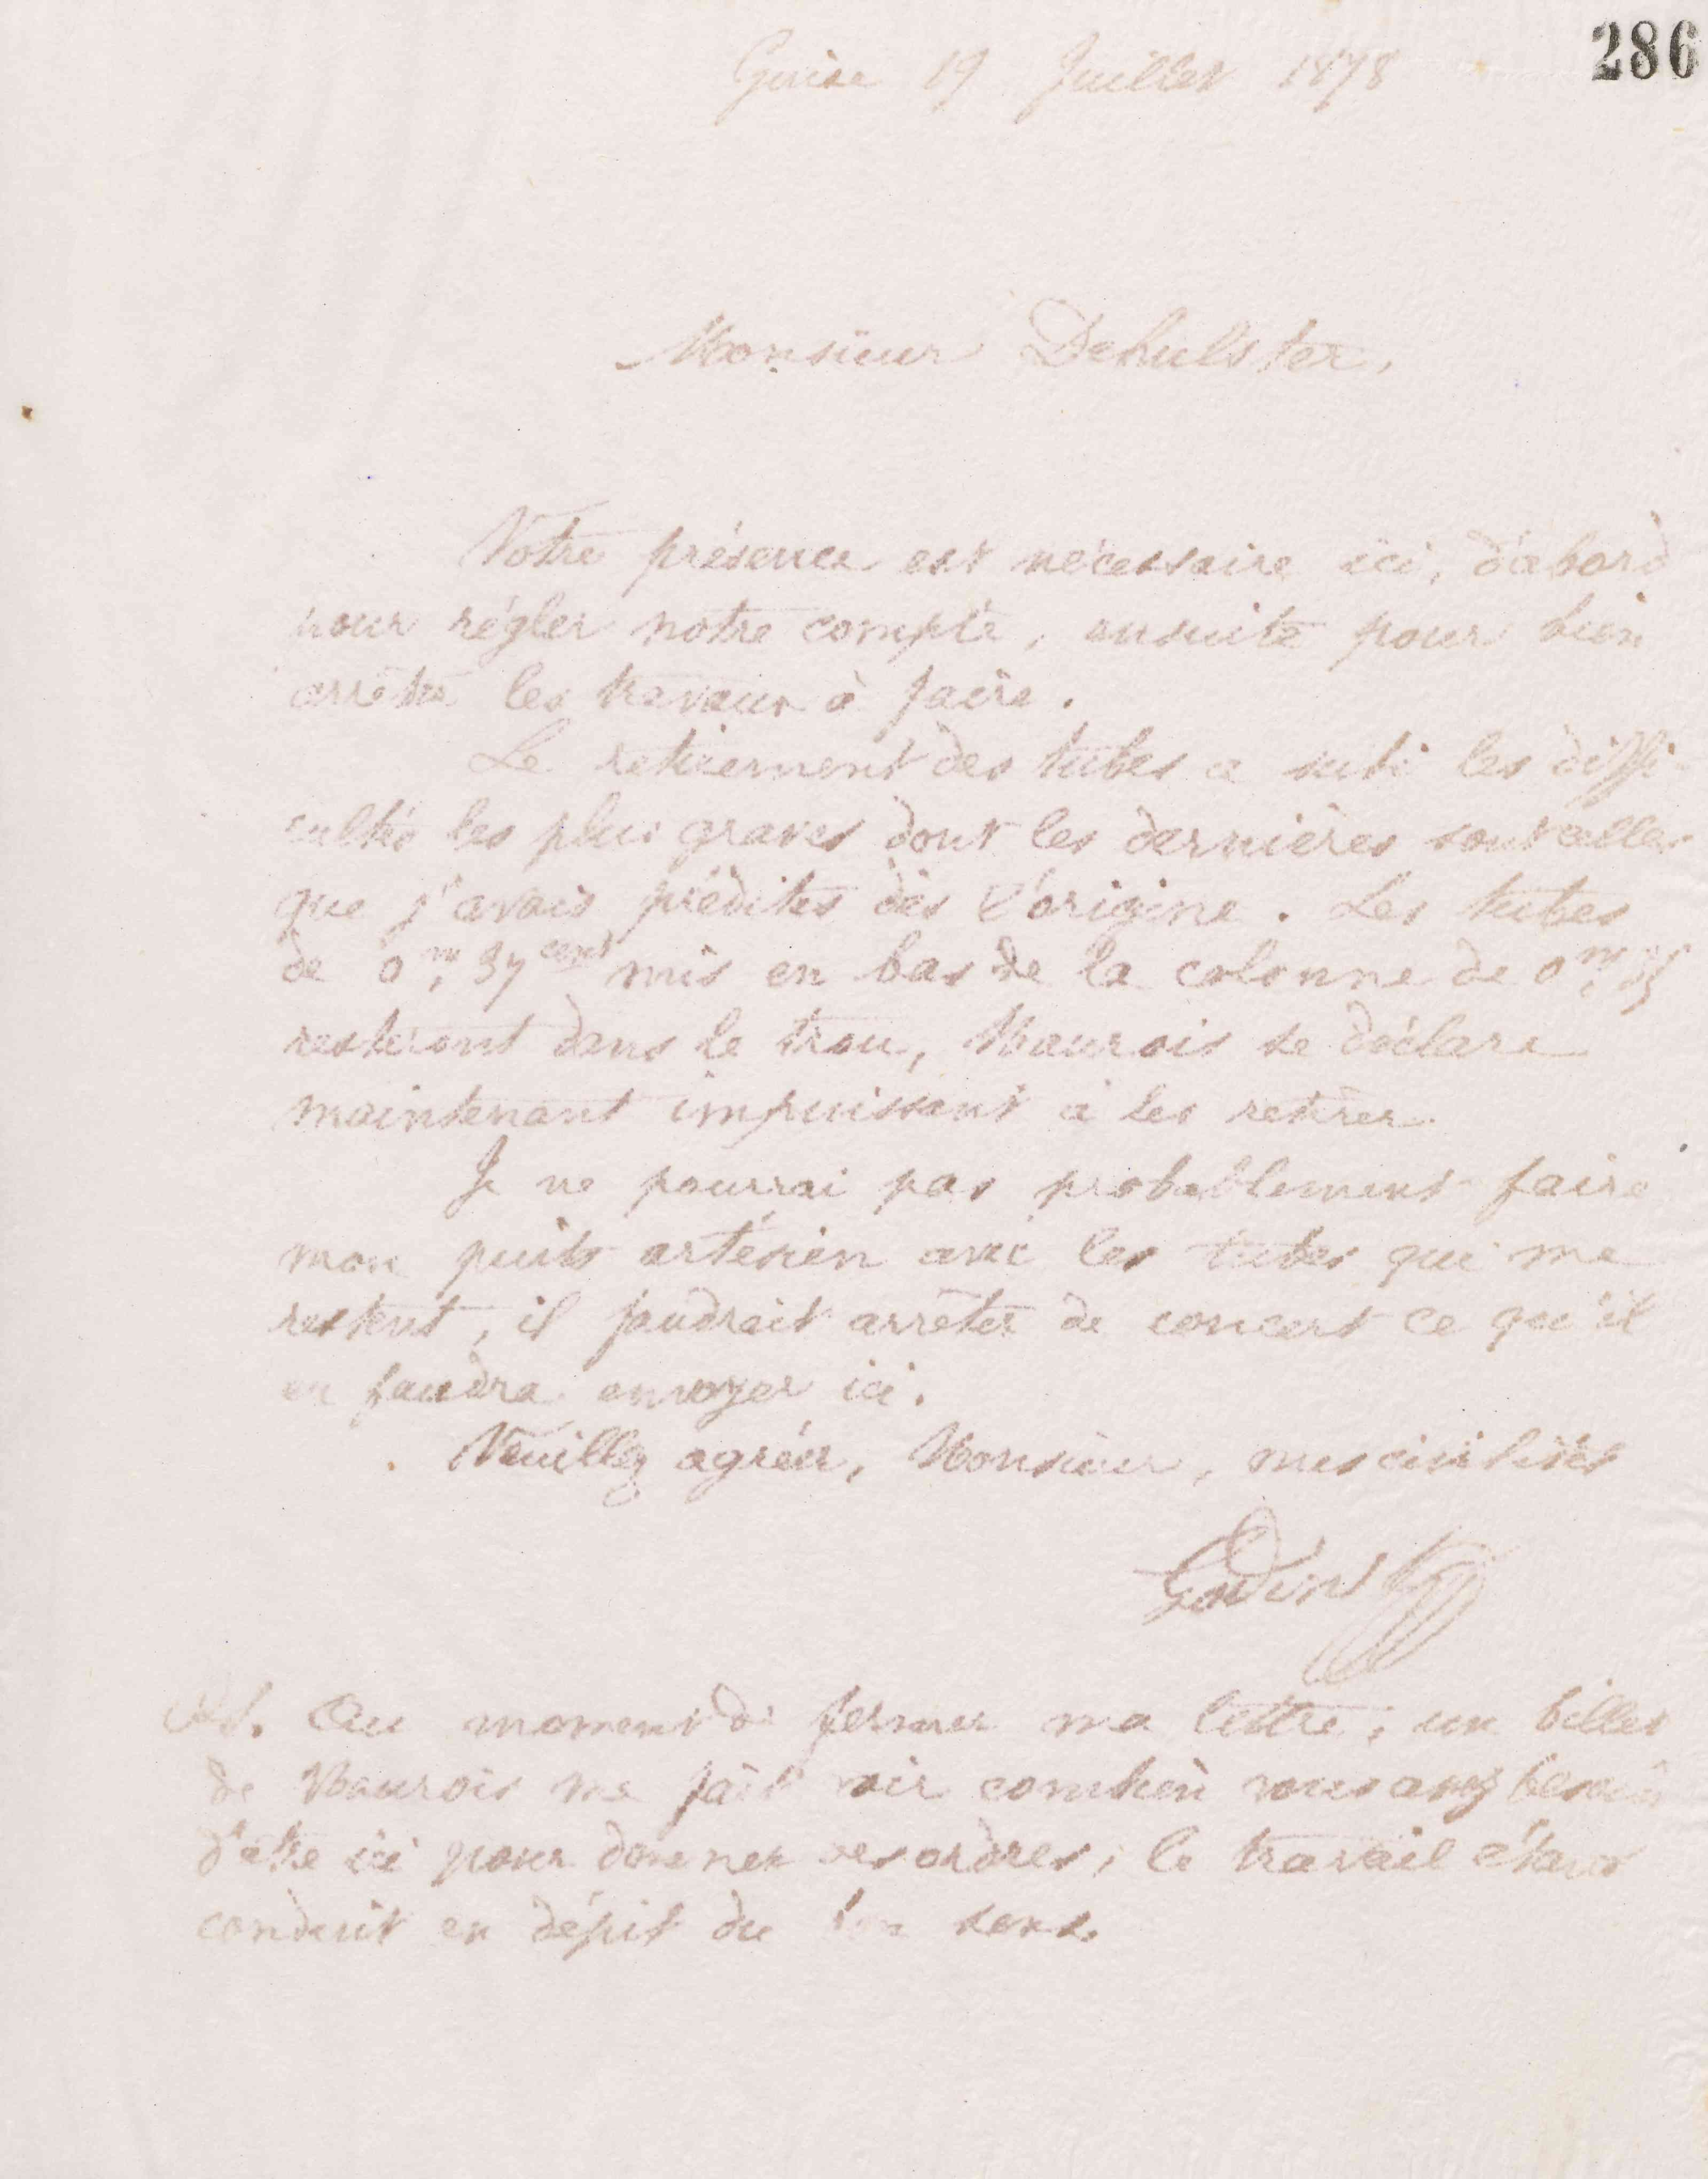 286
Guise 19 Juillet 1878
Monsieur Dehulster,
Votre présence est nécessaire ici, d'abord
pour régler notre compte, ensuite pour bien
arrêter les travaux à faire.
Le retirement des tubes a subi les diffi-
cultés les plus graves dont les dernières sont celles
que j'avais prédites dès l'origine. Les tubes
de 0m,37cent mis en bas de la colonne de 0m,
resteront dans le trou, Maurois se déclare
maintenant impuissant à les retirer.
Je ne pourrai pas probablement faire
mon puits artésien avec les tubes qui me
restent, il faudrait arrêter de concert ce qu'il
en faudra envoyer ici.
Veuillez agréer, Monsieur, mes civilités
Godin
Au moment de fermer ma lettre, un billet
de Maurois me fait voir combien vous avez besoin
d'être ici pour donner ses ordres, le travail étant
conduit en dépit du bon sens.